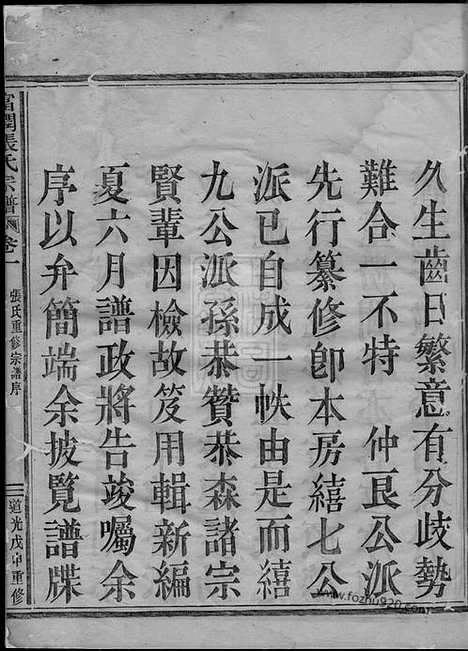 久生齒日繁意有分歧勢
難合一不特 仲艮公派
先行纂修卽本房緒七公
派已自成一帙由是而緒
九公派孫恭贊恭森諸宗
賢輩因檢故笈用輯新編
夏六月譜政將告竣囑余
序以弁簡端余披覽譜牒
張氏宗譜 卷一
張氏重修宗譜序
道光戊申重修
www.fozhu920.com